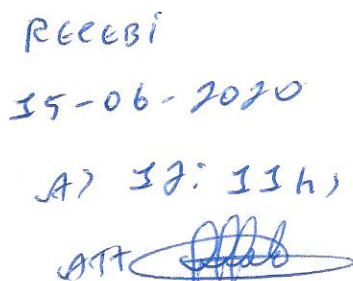 RECEBi
15-06-2020
A) 12:11h)
ATT